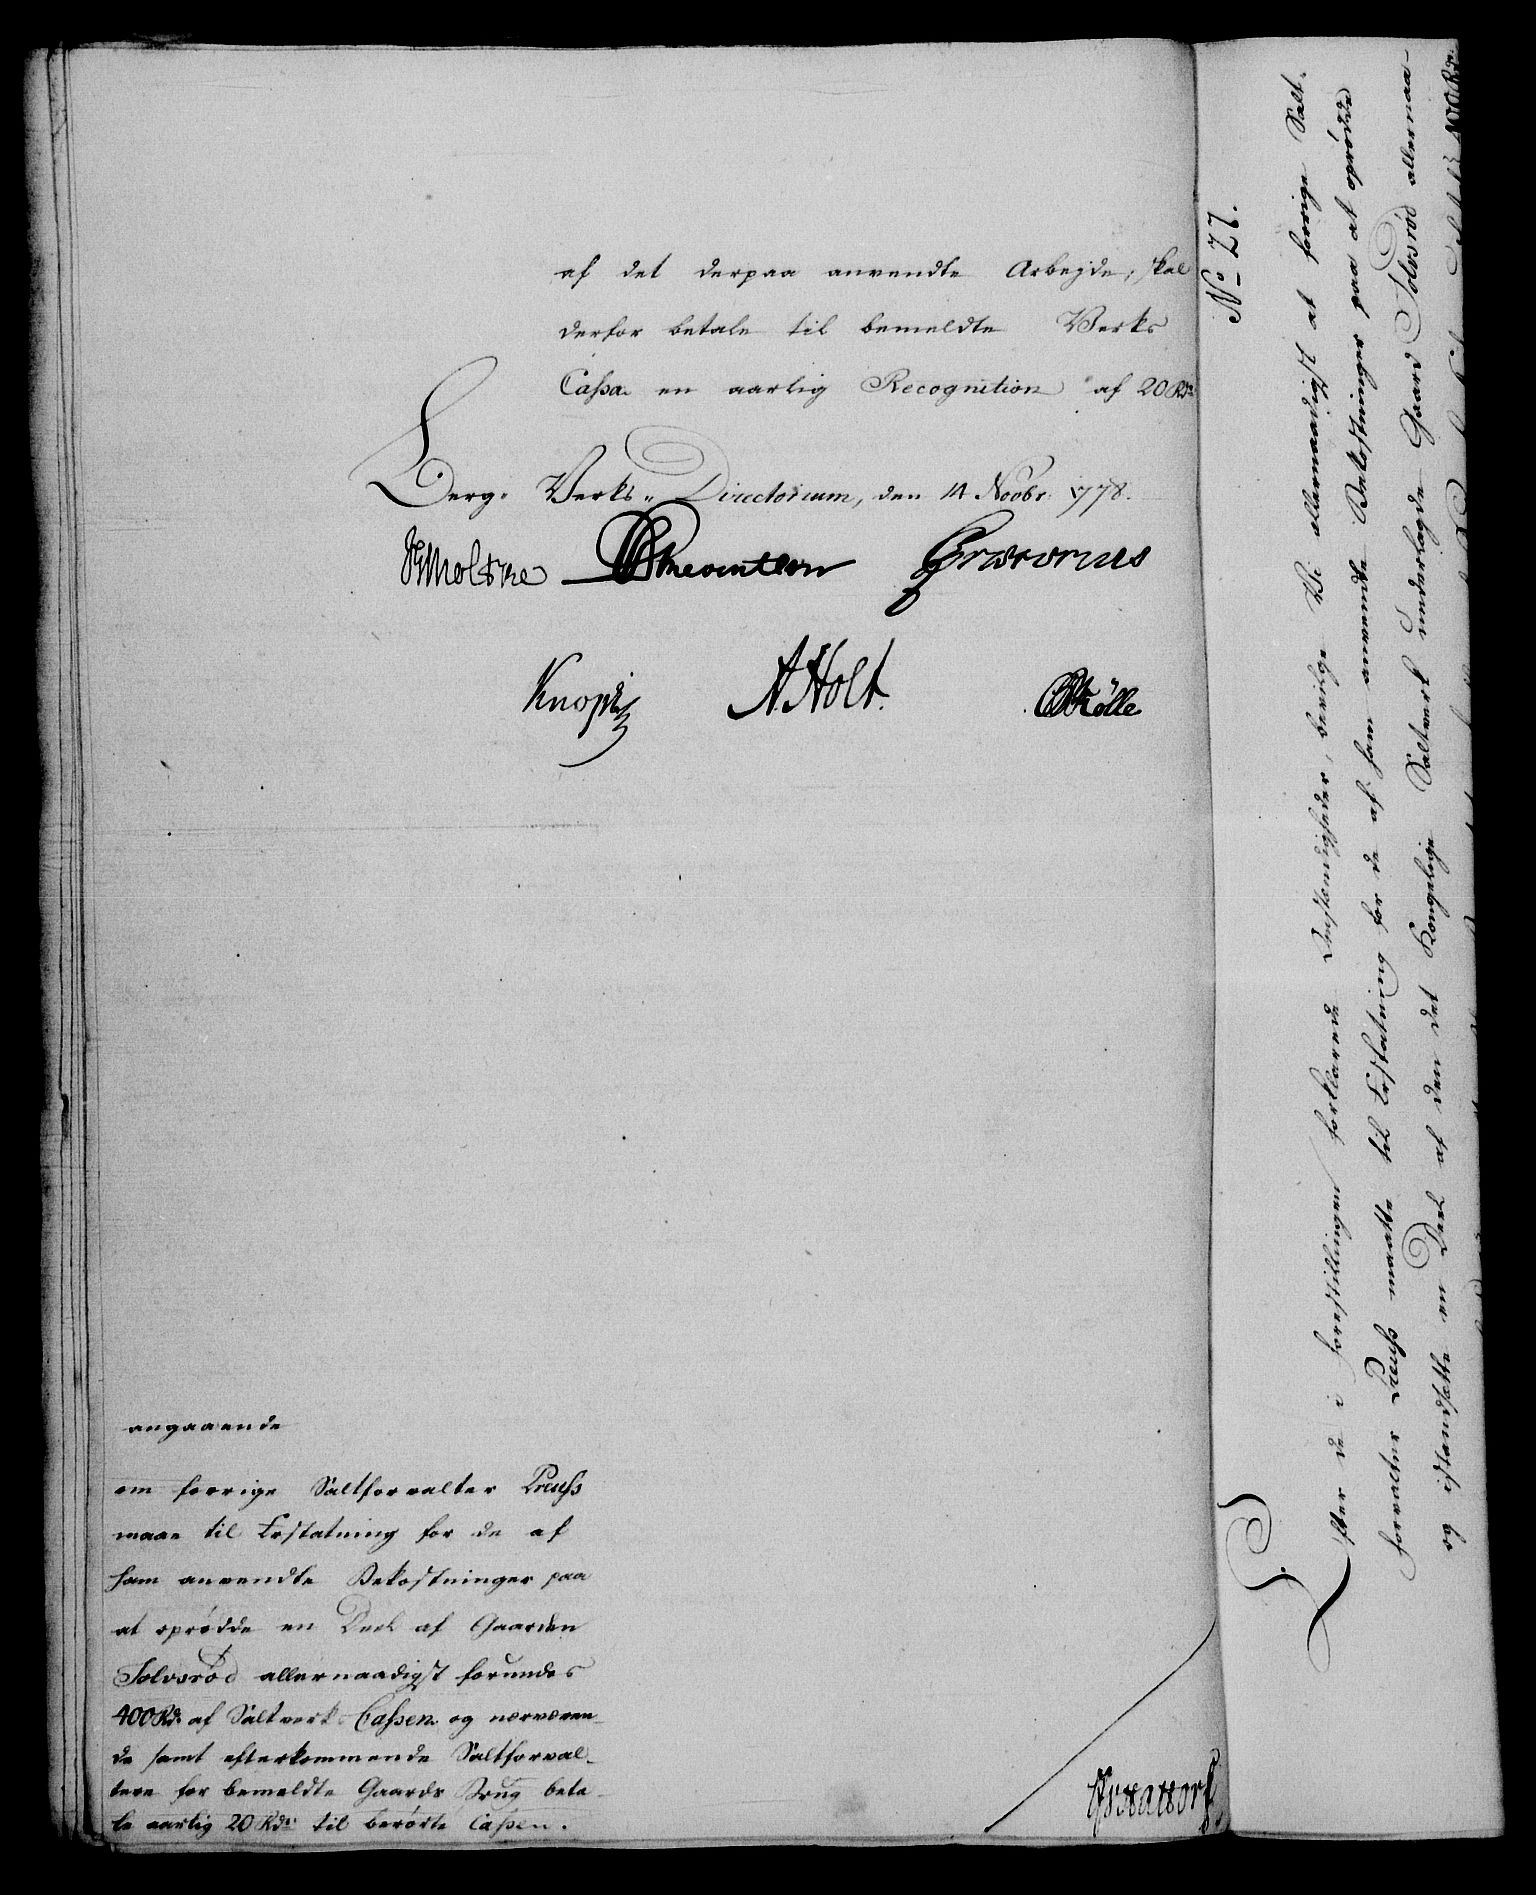 af det derpaa anvendte Arbejde, skal
derfor betale til bemeldte Verks
Cassa en aarlig Recognition af 20 Rdr
Berg- Verks- Directorium, den 14 Novbr. 1778.
Moltke
Knoph A. Holt. Rølle
angaaende
om forrige Saltforvalter Preuss
maae til Erstatning for de af
ham anvendte Bekostninger paa
at oprødde en Deel af Gaarden
Solvsrød allernaadigst forundes
400 Rdr af Saltverks Cassen og nærværen-
de samt efterkommende Saltforval-
tere for bemeldte Gaards Brug beta-
le aarlig 20 Rdr til berørte Cassen.
No 27.
Efter de i Forestillingen forklarede Omstændigheder, bevilge Vi allernaadigst at forrige Salt-
forvalter Preuss maatte til Erstatning for de af ham anvendte Bekostninger paa at oprødde
og istandsætte en Deel af den det Kongelige Saltverk underlagde Gaard Solvsrød allernaa-
400 Rdr